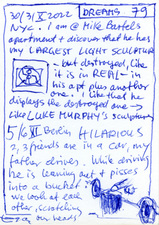 30/31 X 2022 DREAMS 79
NYC. I am @ Mike Bartels
apartment + discover that he has
my LARGEST LIGHT SCULPTURE
- but destroyed, like
it is in REAL - in
his apt plus another
one. I like that he
displays the destroyed one →
like LUKE MURPHY's sculpture
5/6 XI Berlin HILARIOUS
2, 3 friends are in a car, my
father drives. While driving
he is leaning out + pisses
into a bucket.
we look at each
other, scratching
our heads